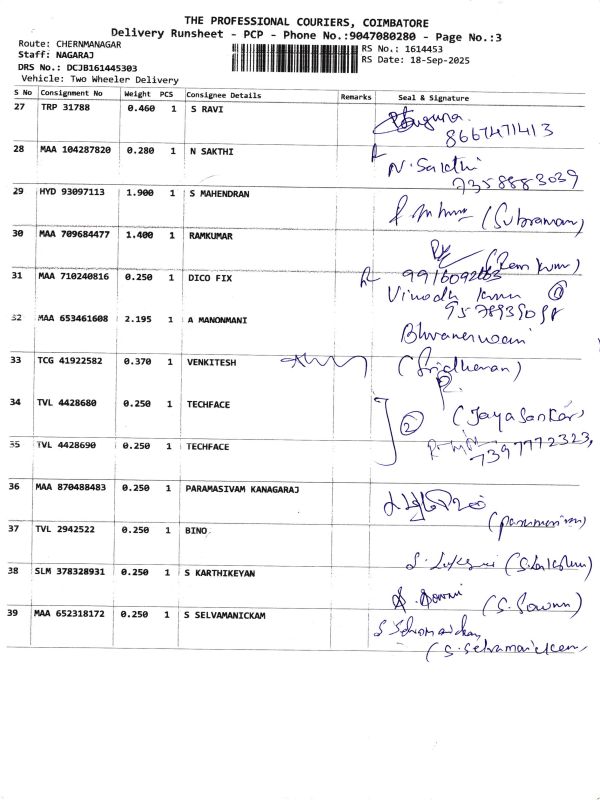 THE PROFESSIONAL COURIERS, COIMBATORE
Delivery Runsheet - PCP - Phone No.:9047080280 - Page No.:3
Route: CHERNMANAGAR
Staff: NAGARAJ
DRS No.: DCJB161445303
Vehicle: Two Wheeler Delivery
RS No.: 1614453
RS Date: 18-Sep-2025
S No Consignment No Weight PCS Consignee Details Remarks Seal & Signature
27 TRP 31788 0.460 1 S RAVI
8667471413
28 MAA 104287820 0.280 1 N SAKTHI
N. Sakthi
7358883039
29 HYD 93097113 1.900 1 S MAHENDRAN
(Subraman)
30 MAA 709684477 1.400 1 RAMKUMAR
(Ram kum)
31 MAA 710240816 0.250 1 DICO FIX
Vinodh
32 MAA 653461608 2.195 1 A MANONMANI
33 TCG 41922582 0.370 1 VENKITESH
(Sridharan)
34 TVL 4428680 0.250 1 TECHFACE
2 (Jayasankar)
35 TVL 4428690 0.250 1 TECHFACE
7397772323,
36 MAA 870488483 0.250 1 PARAMASIVAM KANAGARAJ
37 TVL 2942522 0.250 1 BINO.
38 SLM 378328931 0.250 1 S KARTHIKEYAN
39 MAA 652318172 0.250 1 S SELVAMANICKAM